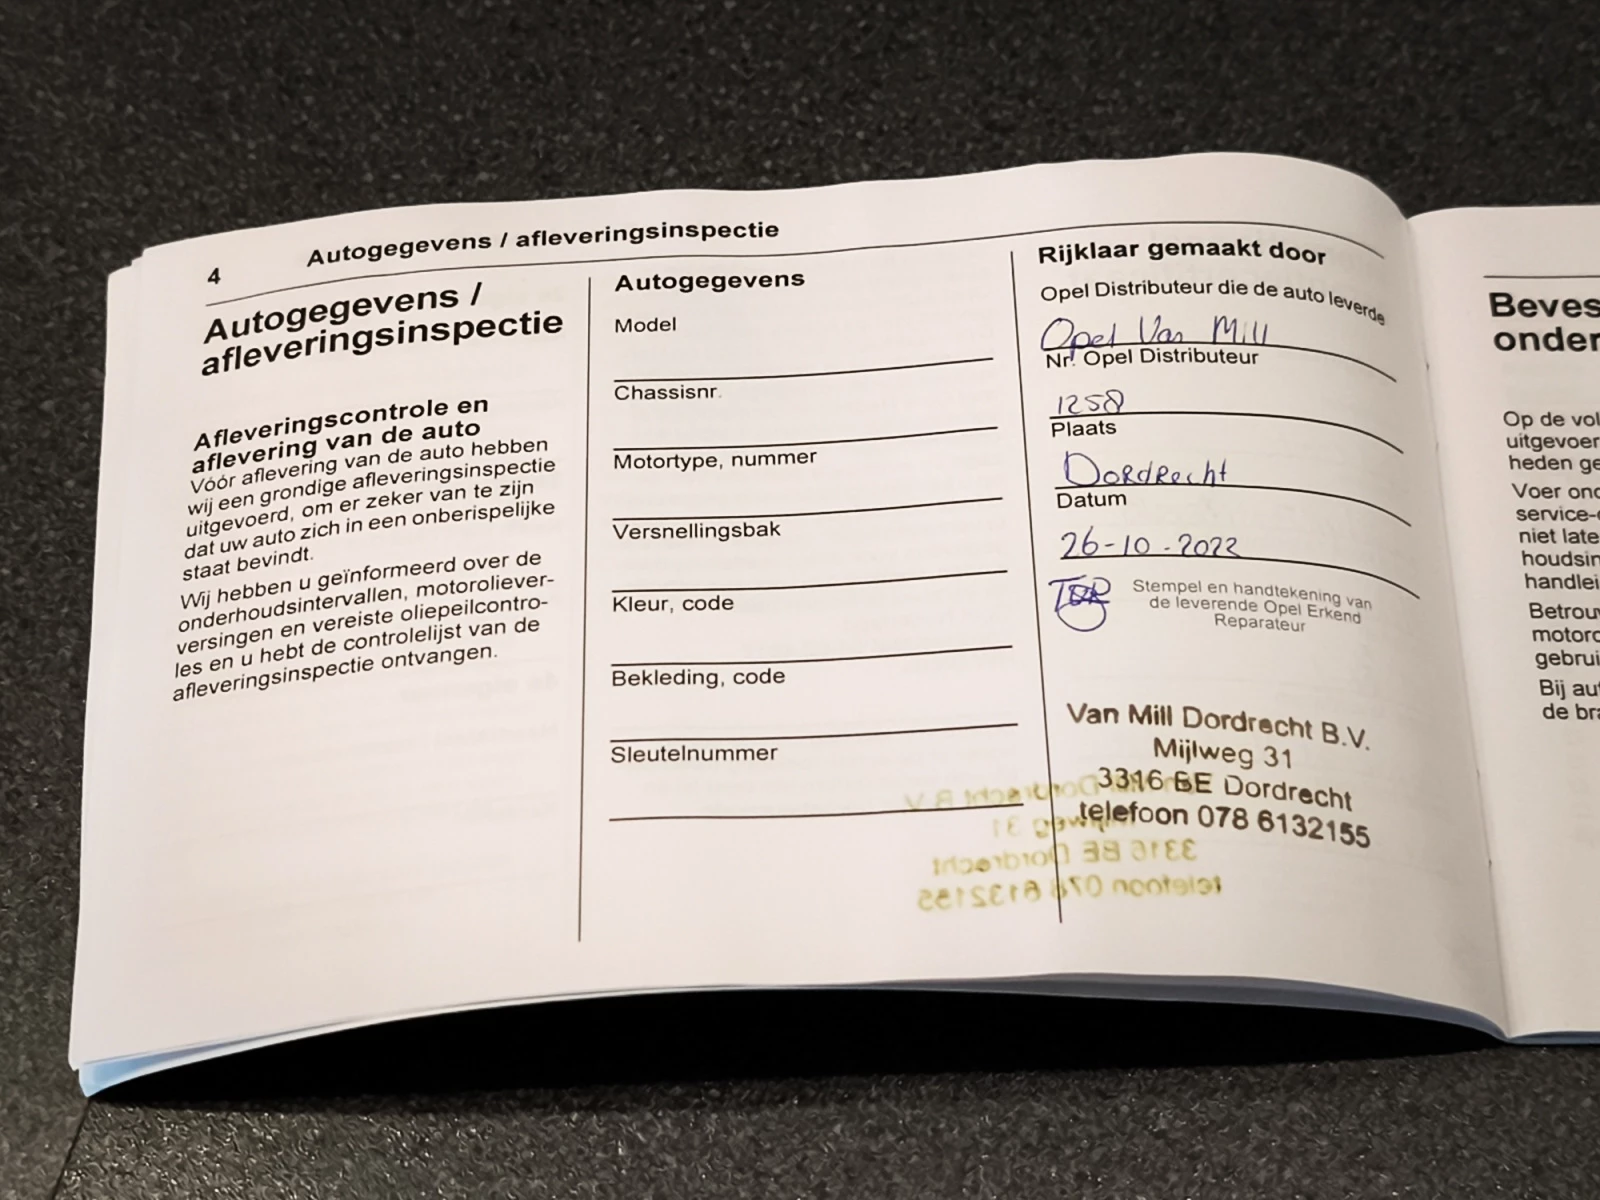 4 Autogegevens / afleveringsinspectie
Autogegevens /
afleveringsinspectie
Afleveringscontrole en
aflevering van de auto
Vóór aflevering van de auto hebben
wij een grondige afleveringsinspectie
uitgevoerd, om er zeker van te zijn
dat uw auto zich in een onberispelijke
staat bevindt.
Wij hebben u geïnformeerd over de
onderhoudsintervallen, motoroliever-
versingen en vereiste oliepeilcontro-
les en u hebt de controlelijst van de
afleveringsinspectie ontvangen.
Autogegevens
Model
Chassisnr.
Motortype, nummer
Versnellingsbak
Kleur, code
Bekleding, code
Sleutelnummer
Rijklaar gemaakt door
Opel Distributeur die de auto leverde
Opel Van Mill
Nr. Opel Distributeur
1258
Plaats
Dordrecht
Datum
26-10-2022
Stempel en handtekening van
de leverende Opel Erkend
Reparateur
Van Mill Dordrecht B.V.
Mijlweg 31
3316 BE Dordrecht
telefoon 078 6132155
Beves
onder
Op de vol
uitgevoer
heden ge
Voer ond
service-
niet late
houdsin
handlei
Betrou
motoro
gebrui
Bij au
de bra